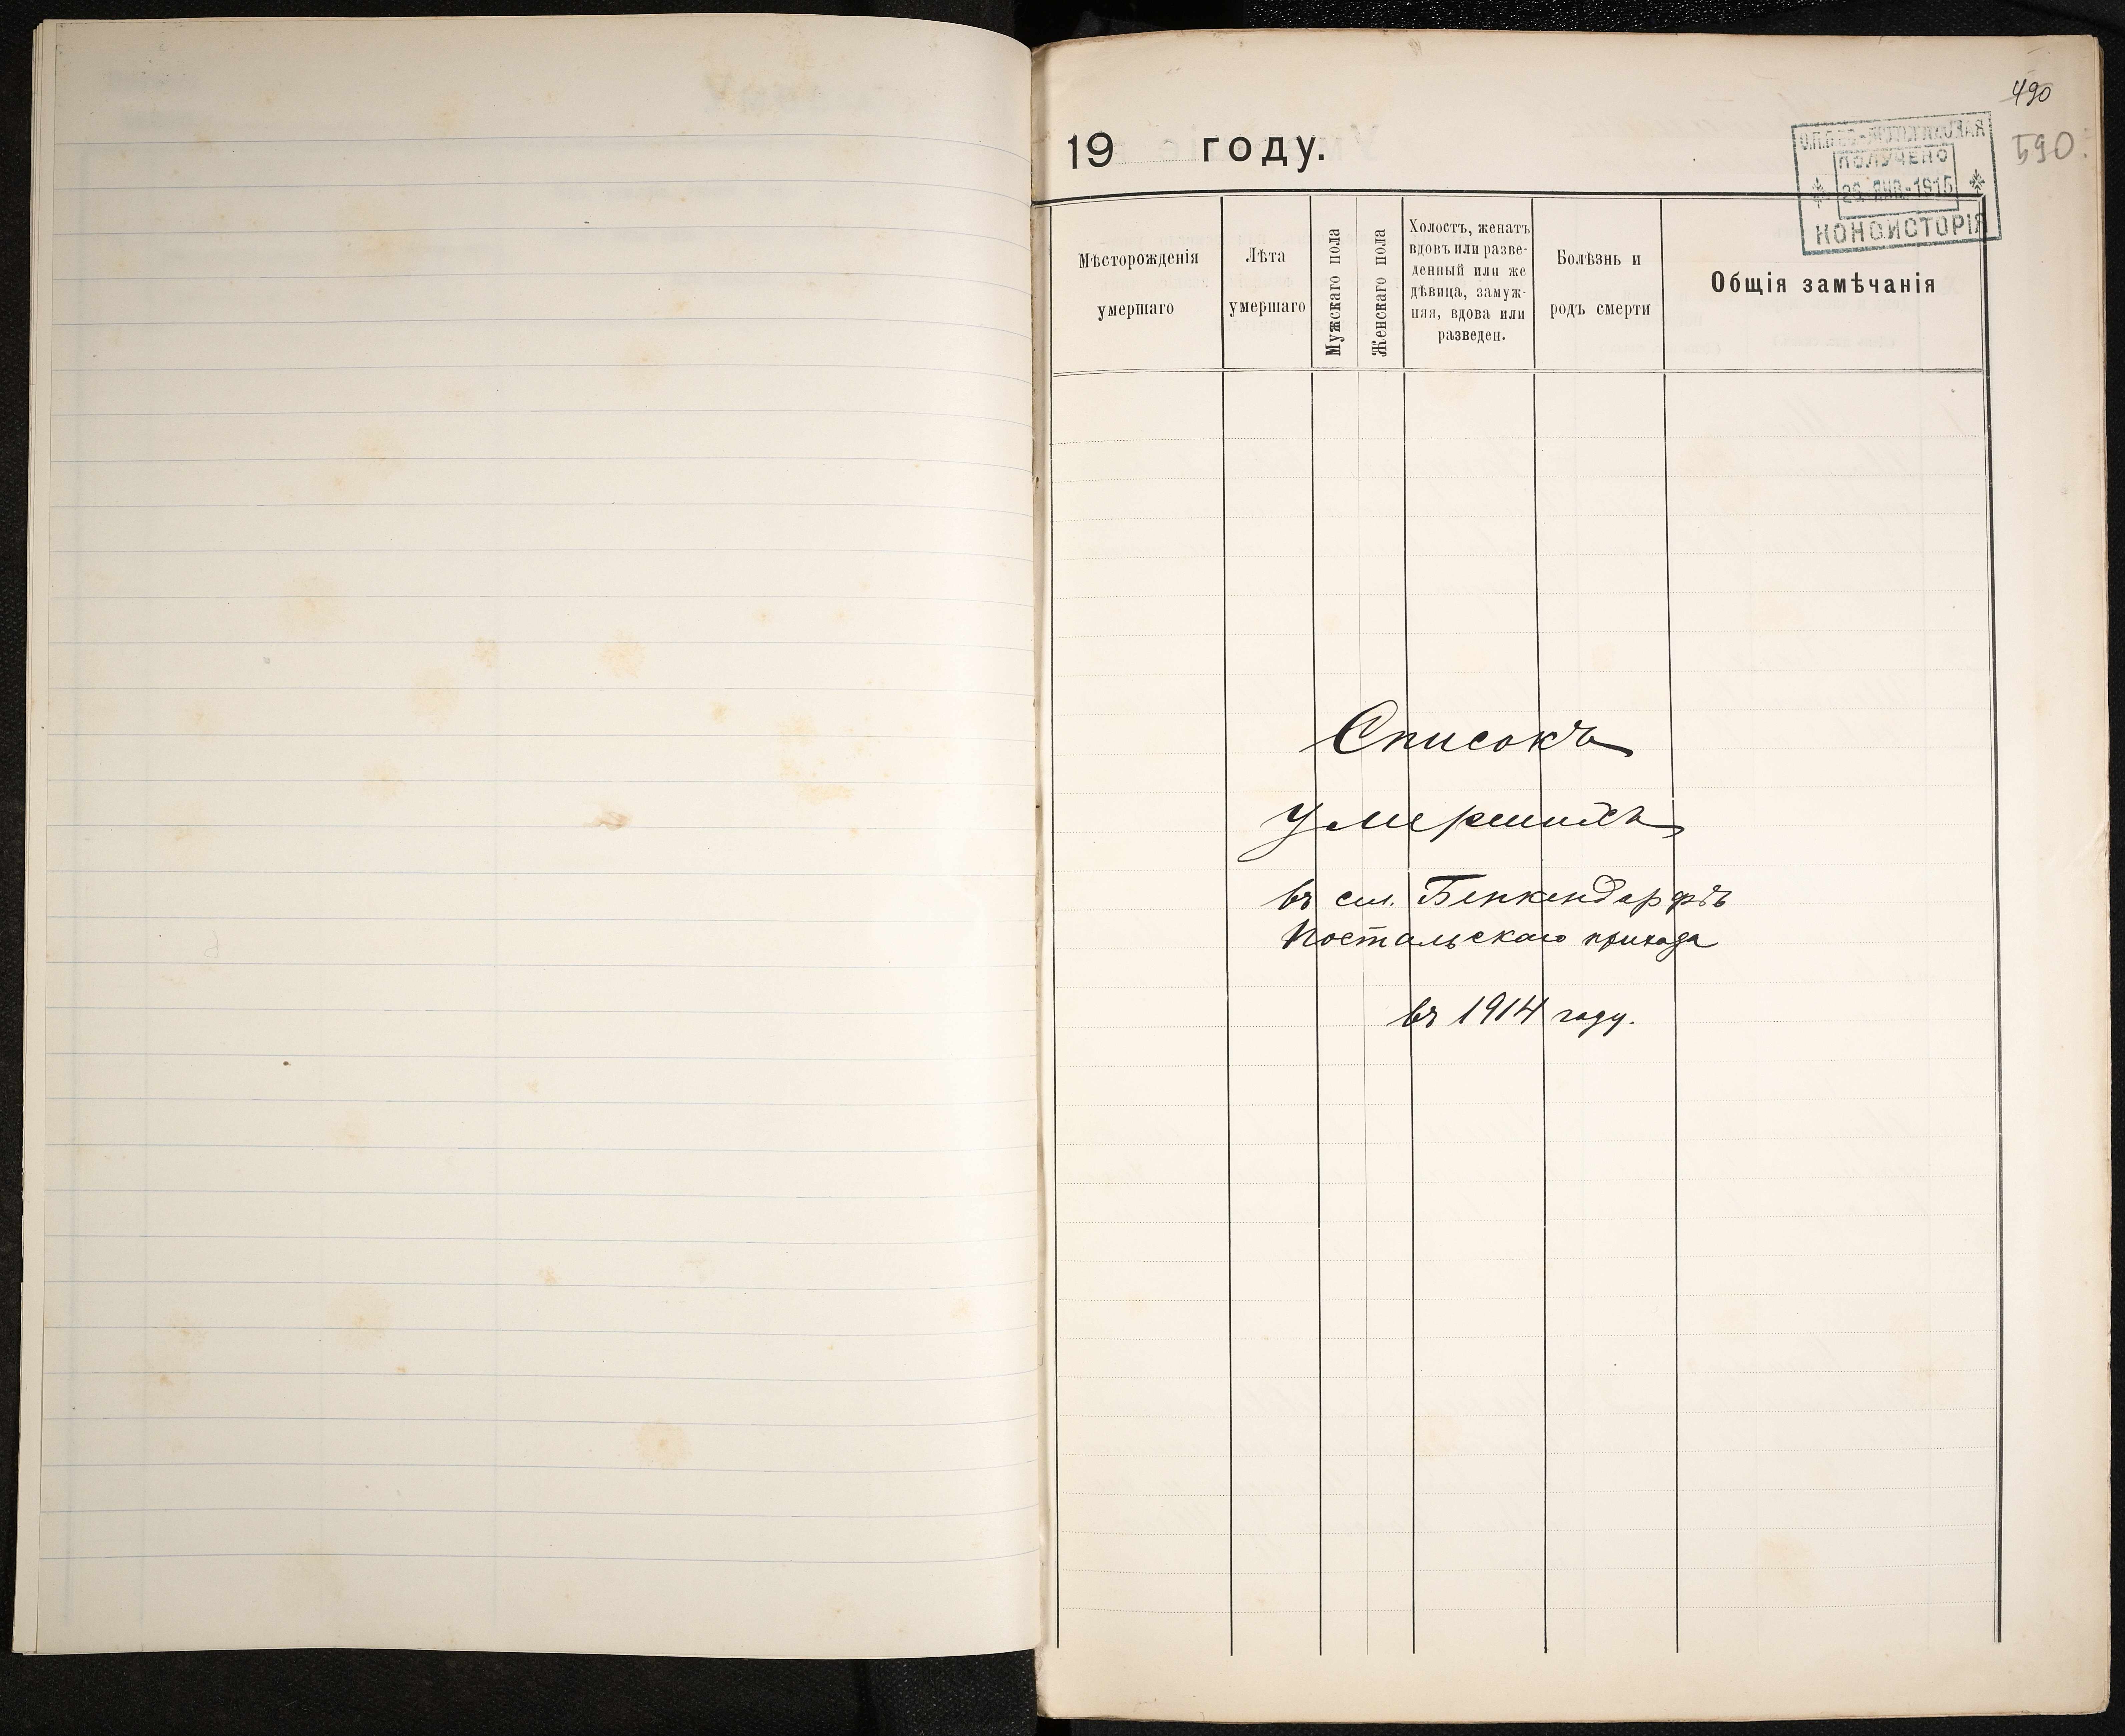 490
590.
19 году.
ПОЛУЧЕНО
КОНСИСТОРІЯ
Мѣсторожденія
умершаго
Лѣта
умершаго
Мужскаго пола
Женскаго пола
Холостъ, женатъ
вдовъ или разве-
денный или же
дѣвица, замуж-
няя, вдова или
разведен.
Болѣзнь и
родъ смерти
Общія замѣчанія
Списокъ
умершихъ
въ сел. Бенкендорфъ
Костальскаго прихода
въ 1914 году.